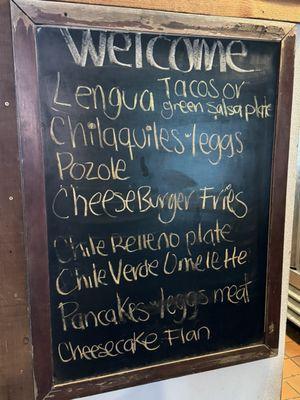 Welcome
Lengua Tacos or
green salsa plate
Chilaquiles w/eggs
Pozole
CheeseBurger Fries
Chile Relleno plate
Chile Verde Omelette
Pancakes w/eggs meat
Cheesecake Flan